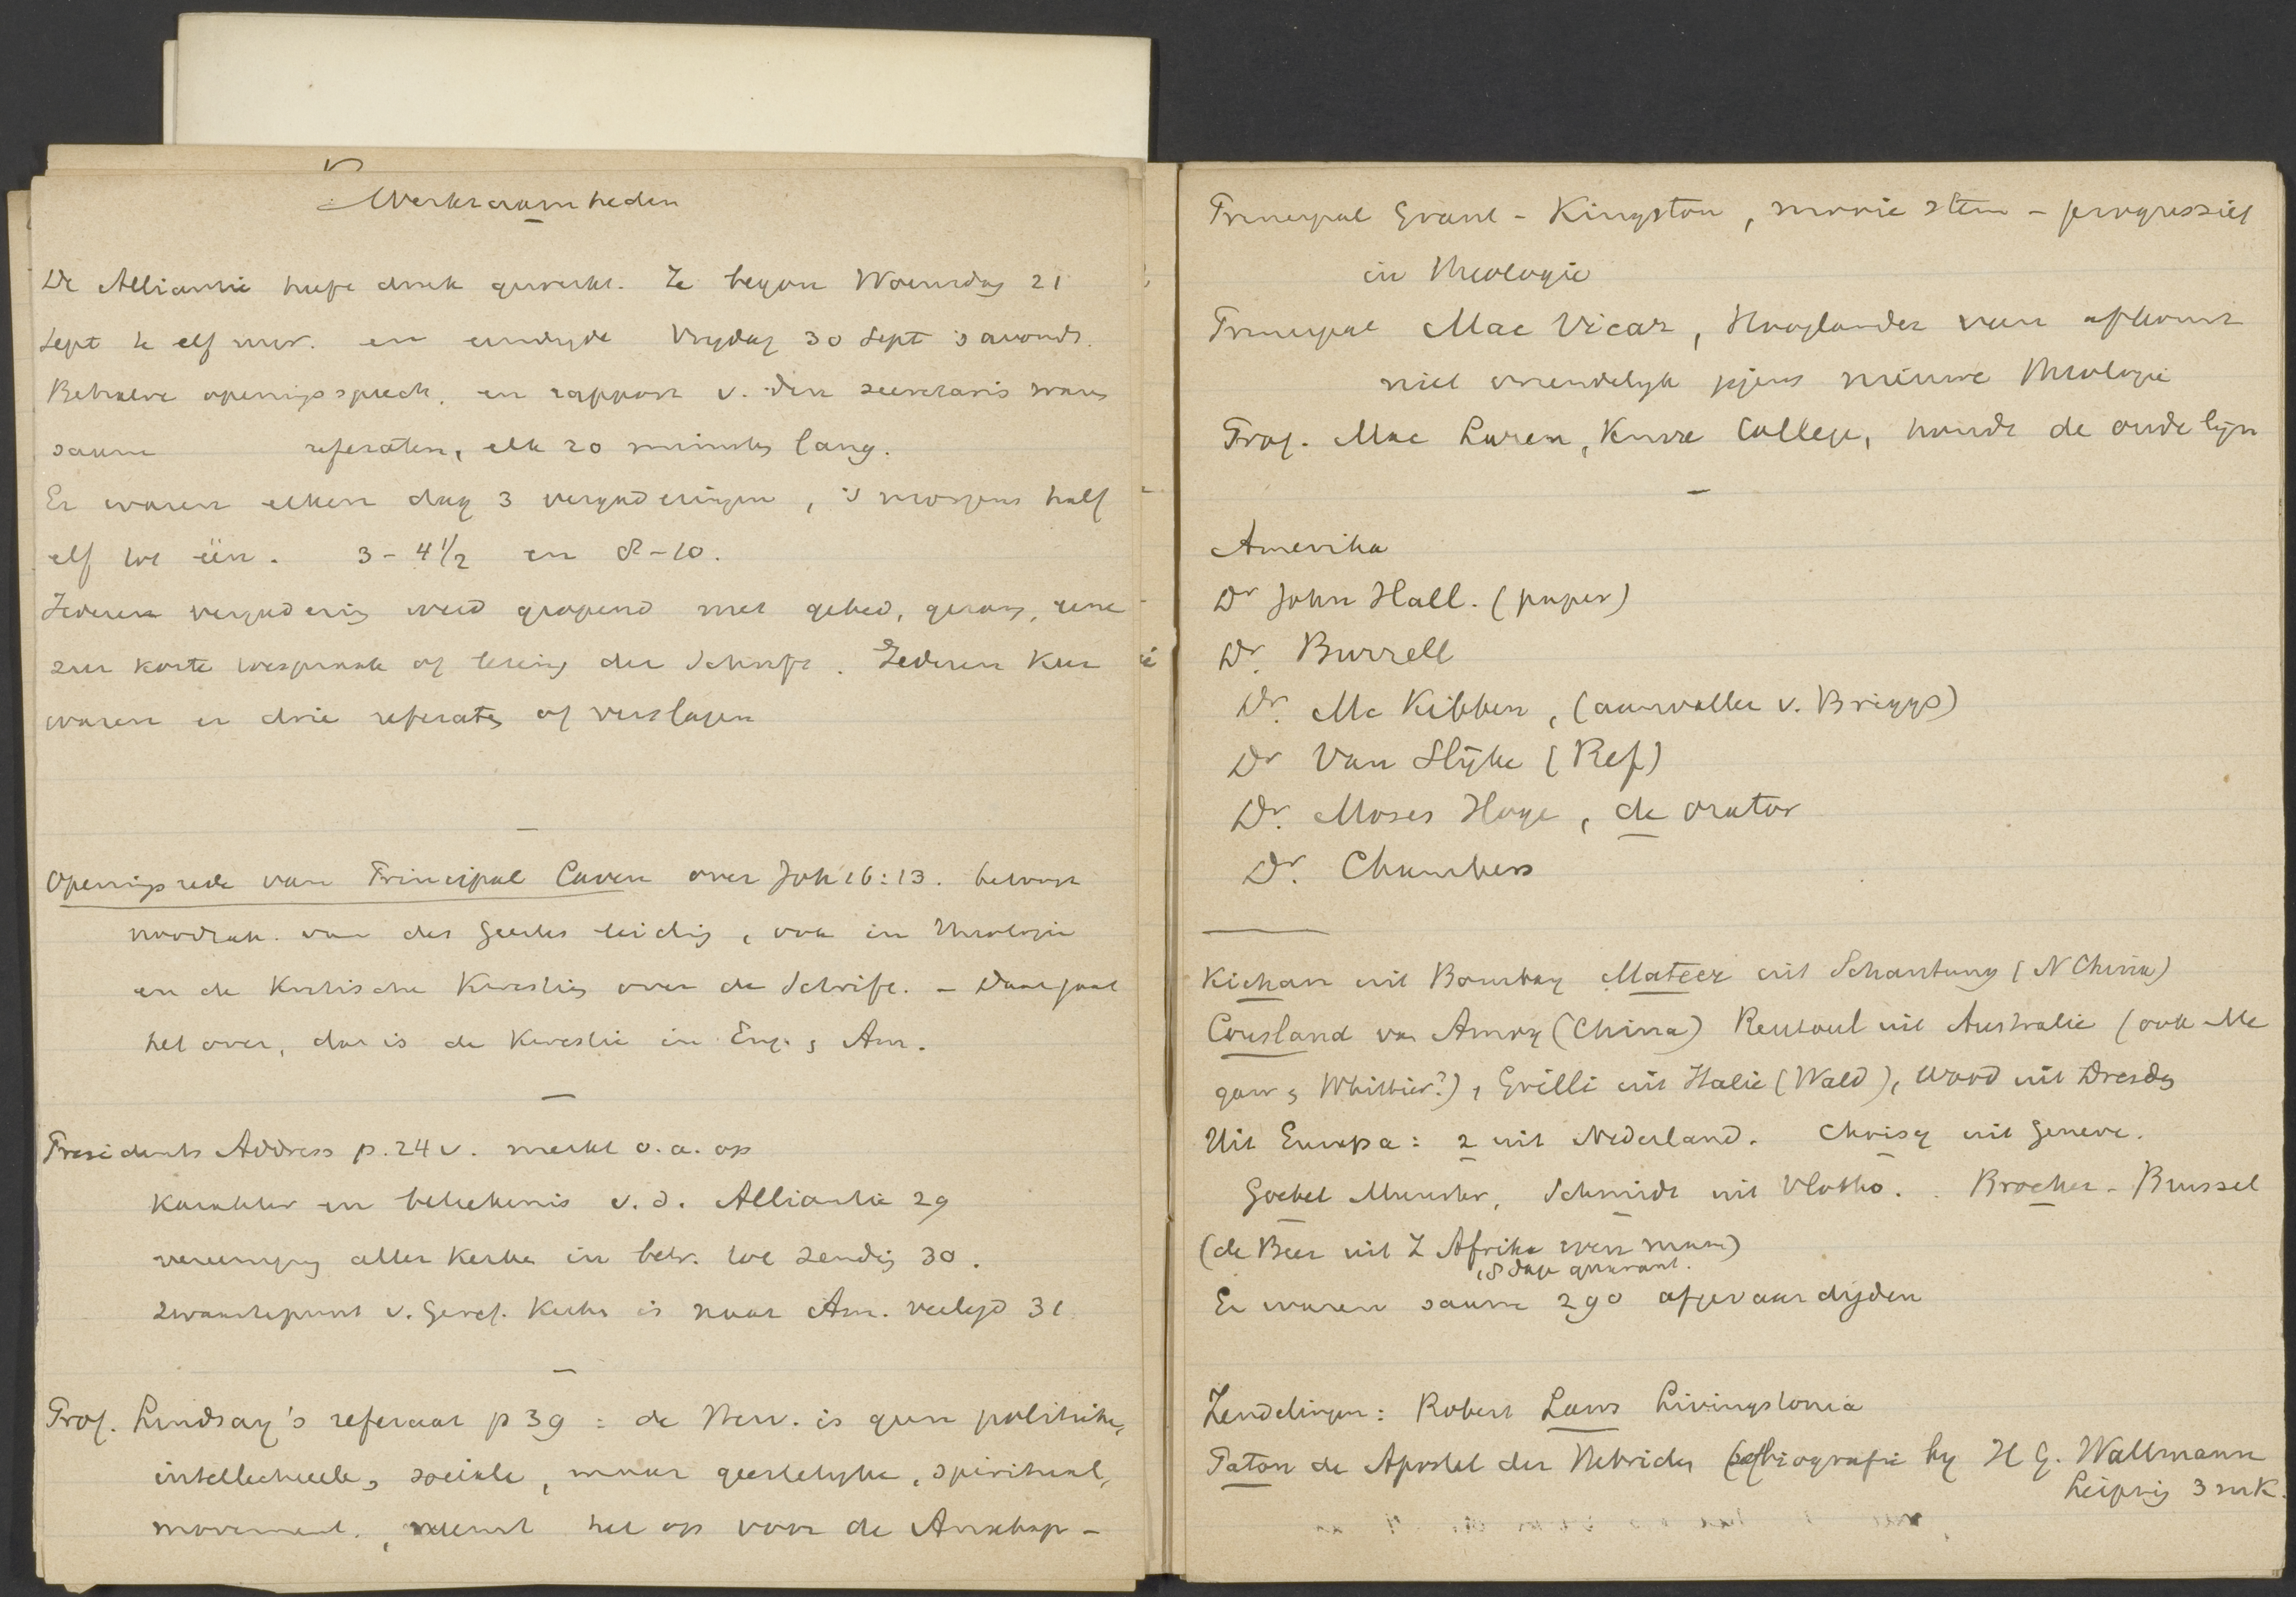 Werkzaamheden
De Alliantie heeft druk gewerkt. Ze begon Woensdag 21
Sept te elf uur. en eindigde Vrijdag 30 Sept 's avonds.
Behalve openingsspeech, en rapport v. den secretaris waren
saam referaten, elk 20 minuten lang.
Er waren elken dag 3 vergaderingen, 's morgens half
elf tot één. 3 - 4 1/2 en 8 - 10.
Iedere vergadering werd geopend met gebed, gezang, eene
zeer korte toespraak of lezing der Schrift. Iederen keer
waren er drie referaten of verslagen
Openingsrede van Principal Caven over Joh 16:13. betoont
noodzak. van des Geestes leiding, ook in Theologie
en de Kritische Kwestien over de Schrift. - Daar gaat
het over, dat is de Kwestie in Eng. en Am.
Presidents Address p. 24 v. merkt o.a. op
karakter en beteekenis v.d. Alliantie 29
vereeniging aller Kerken in betr. tot zending 30.
zwaartepunt v. Geref. Kerken is naar Am. verlegd 31
Prof. Lindsay's referaat p 39 : de Herv. is geen politieke,
intellectueele, sociale, maar geestelijke, spiritual,
movement., neemt het op voor de Anabap-
Principal Grant - Kingston, mooie stem - progressief
in Theologie
Principal Mac Vicar, Hooglander van afkomst
niet vriendelijk jegens nieuwe Theologie
Prof. Mac Laren, Knox College, houdt de oude lijn
Amerika
Dr John Hall. (paper)
Dr. Burrell
Dr. Mc Kibben, (aanvaller v. Briggs)
Dr Van Slyke (Ref)
Dr. Moses Hoge, de orator
Dr. Chambers
Kichan uit Bombay Mateer uit Schantung (N China)
Cousland van Amoy (China) Rentoul uit Australie (ook Mc
gaw en Whittier?), Grilli uit Italie (Wald), Wood uit Dresden
Uit Europa: 2 uit Nederland. Choisy uit Geneve.
Goebel Munster, Schmidt uit Vlotho. Brocher - Brussel
(de Beer uit Z Afrika even man)
, 8 dage quarant.
Er waren saam 290 afgevaardigden
Zendelingen: Robert Laws Livingstonia
Paton de Apostel der Hebriden (biografie by H G. Wallmann
Leipzig 3 mk.